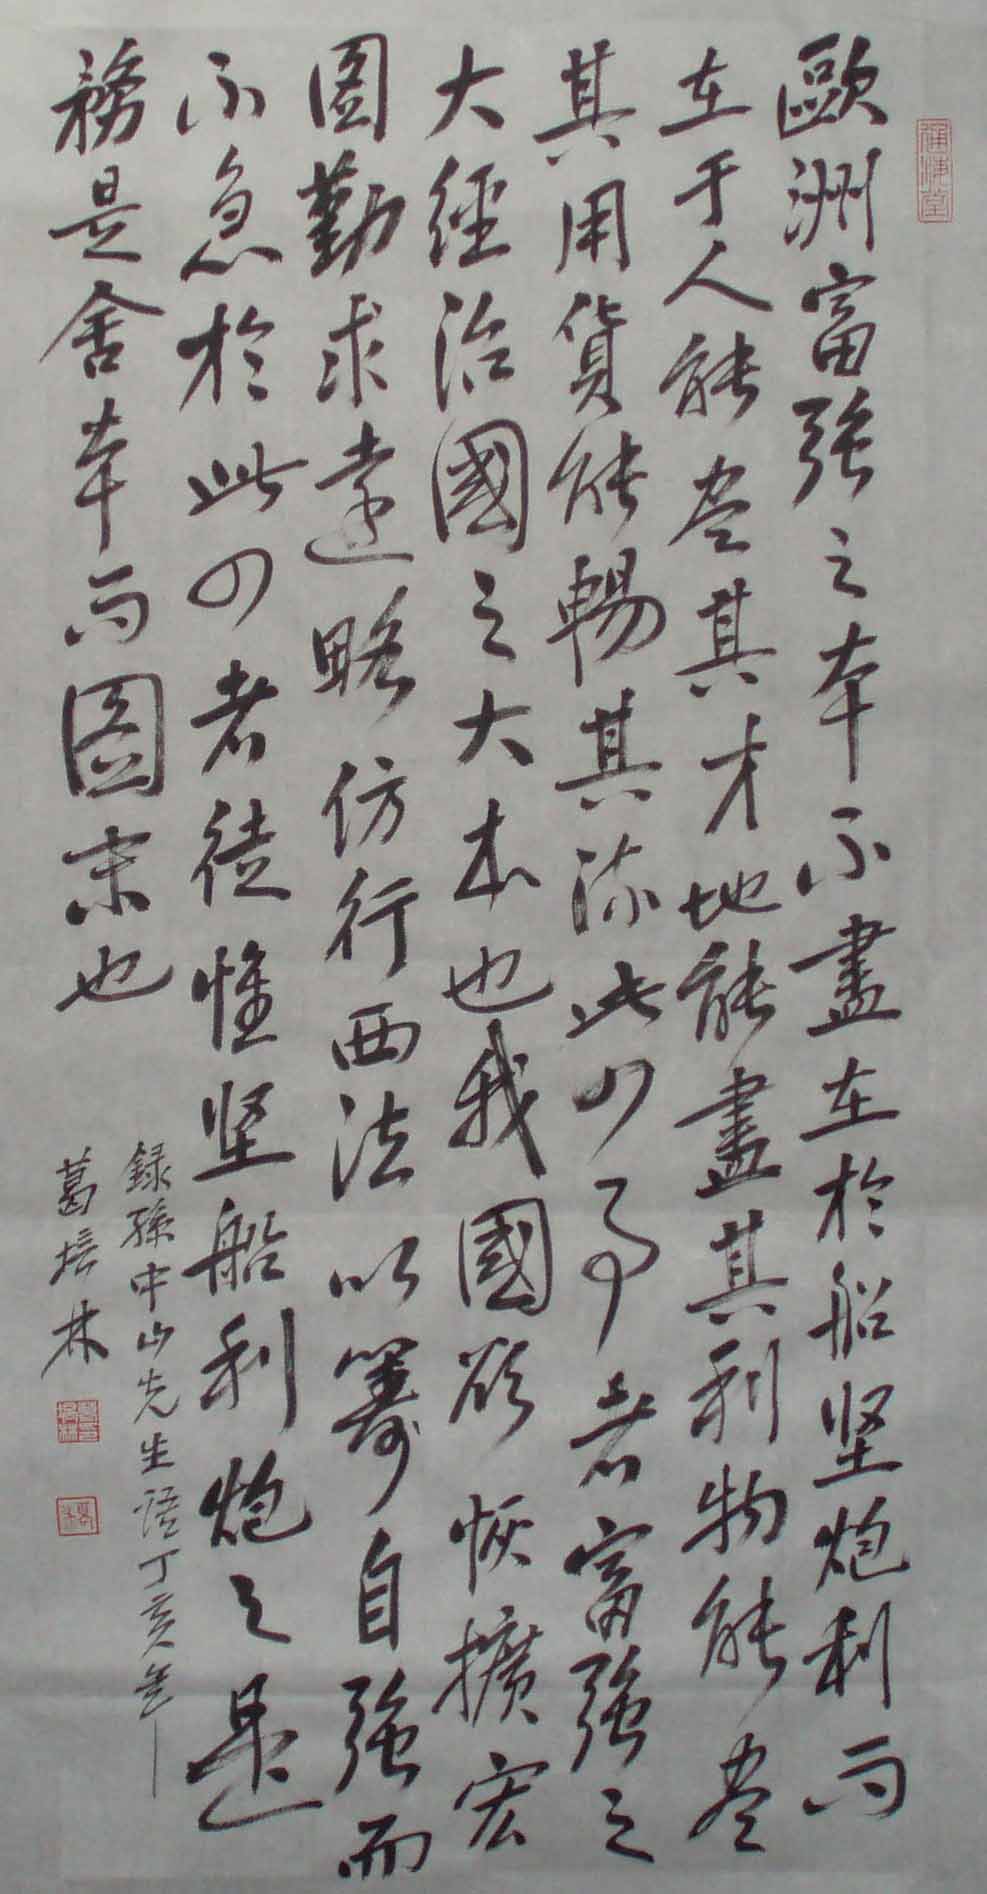 歐洲富強之本不盡在於船坚炮利而
在于人能尽其才地能盡其利物能尽
其用貨能暢其流此四事者富強之
大經治國之大本也我國欲恢擴宏
图勤求遠略仿行西法以籌自強而
不急於此四者徒惟坚船利炮之是
務是舍本而图末也
録孫中山先生語丁亥年
葛培林